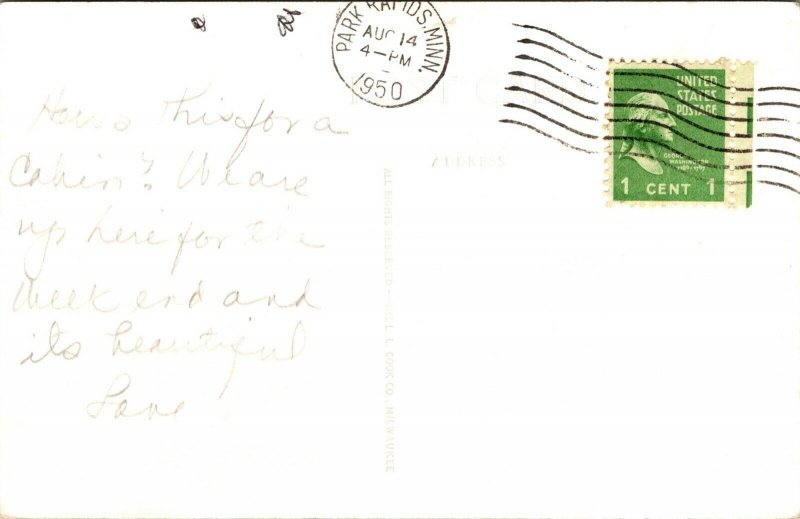 PARK RAPIDS, MINN.
AUG 14
4-PM
1950
UNITED
STATES
POSTAGE
GEORGE
WASHINGTON
1789-1797
1 CENT 1
ADDRESS
How's this for a
Cabin? We are
up here for the
week end and
its beautiful
Love
ALL RIGHTS RESERVED — L. L. COOK CO. MILWAUKEE